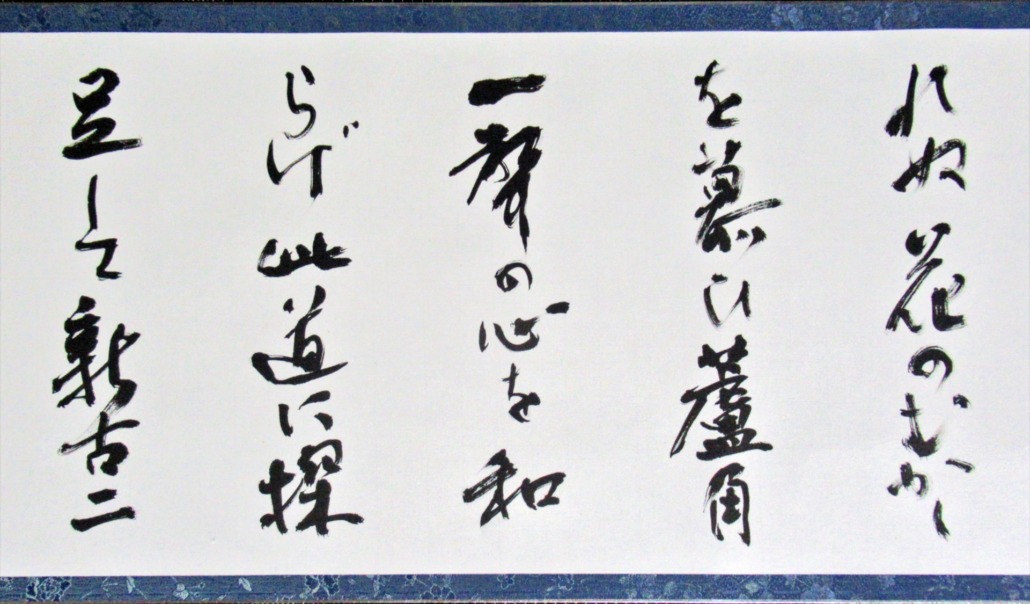 れぬ花のむかし
を慕ひ蘆角
一聲の心を和
らげ此道に探
足して新古二